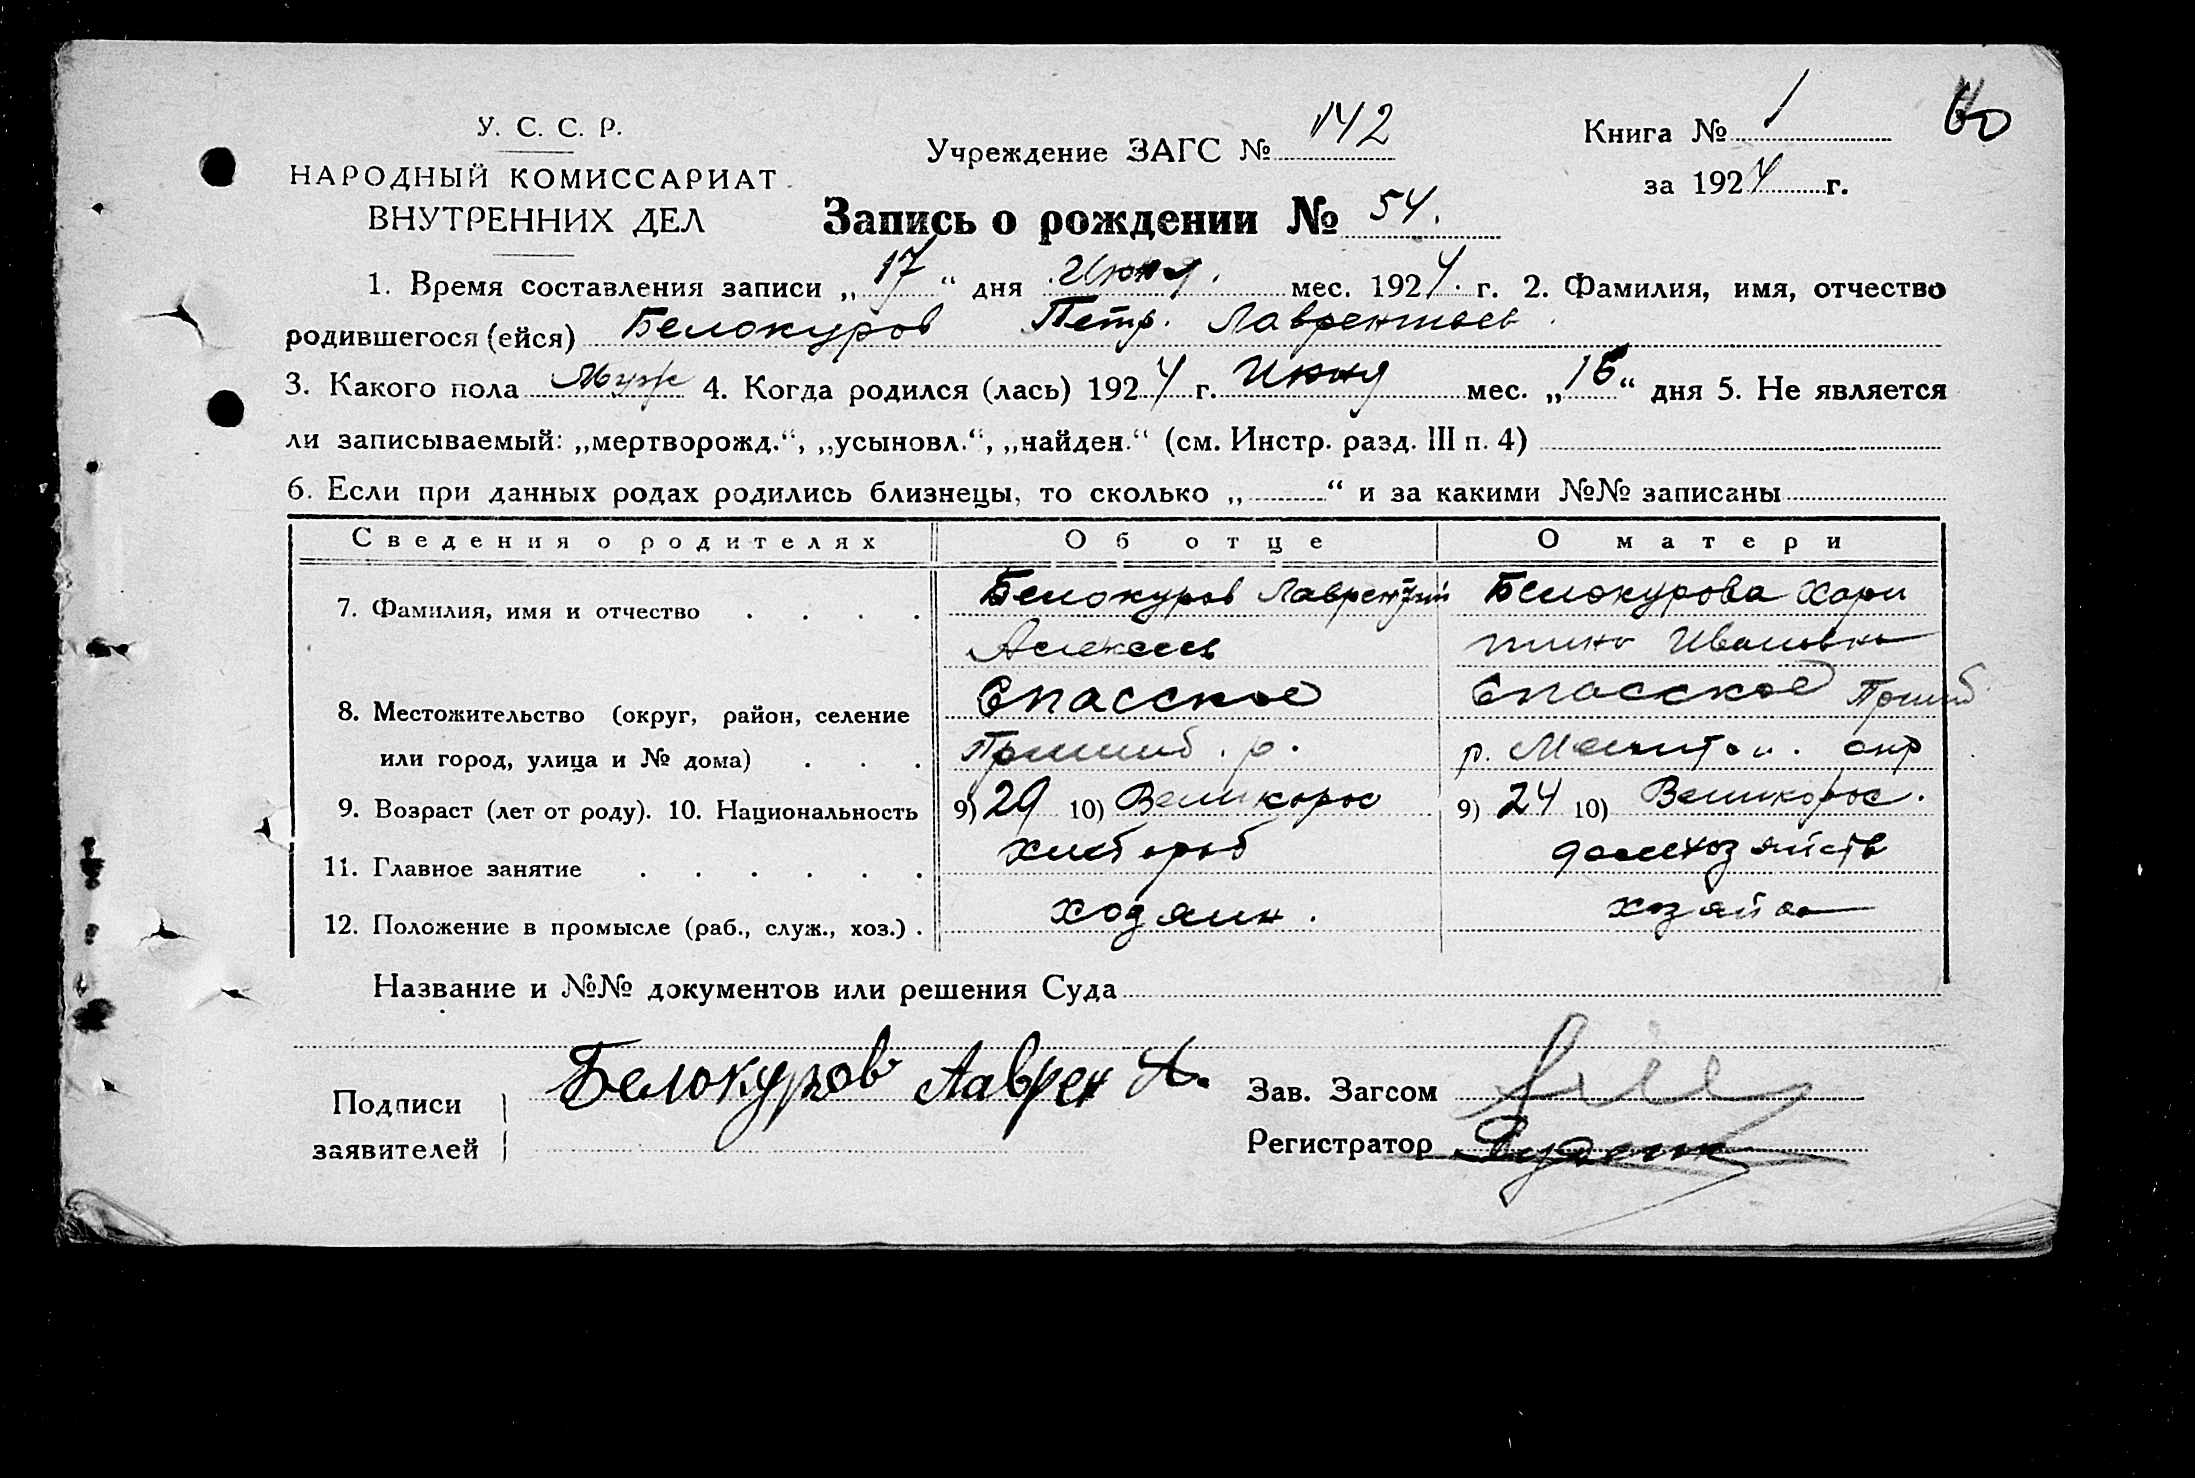 У. С. С. Р.
НАРОДНЫЙ КОМИССАРИАТ
ВНУТРЕННИХ ДЕЛ
Учреждение ЗАГС № 142
Книга № 1
60
за 1924 г.
Запись о рождении № 54.
1. Время составления записи „17“ дня Июня мес. 1924 г. 2. Фамилия, имя, отчество
родившегося (ейся) Белокуров Петр. Лаврентьев
3. Какого пола Муж 4. Когда родился (лась) 1924 г. Июня мес. „16“ дня 5. Не является
ли записываемый: „мертворожд.“, „усыновл.“, „найден.“ (см. Инстр. разд. III п. 4)
6. Если при данных родах родились близнецы, то сколько „ “ и за какими №№ записаны
Сведения о родителях Об отце О матери
7. Фамилия, имя и отчество . . . . Белокуров Лаврентий Белокурова Хари
Алексеев тина Ивановна
Спасское Спасское Пришиб
8. Местожительство (округ, район, селение
или город, улица и № дома) . . . Пришиб. р. р. Мелитоп. окр
9. Возраст (лет от роду). 10. Национальность 9) 29 10) Великорос 9) 24 10) Великорос.
11. Главное занятие . . . . . . хлебороб домхозяйств
12. Положение в промысле (раб., служ., хоз.) . ходяин. хозяйка
Название и №№ документов или решения Суда
Подписи
заявителей
Белокуров Лаврен А.
Зав. Загсом
Регистратор Руденк